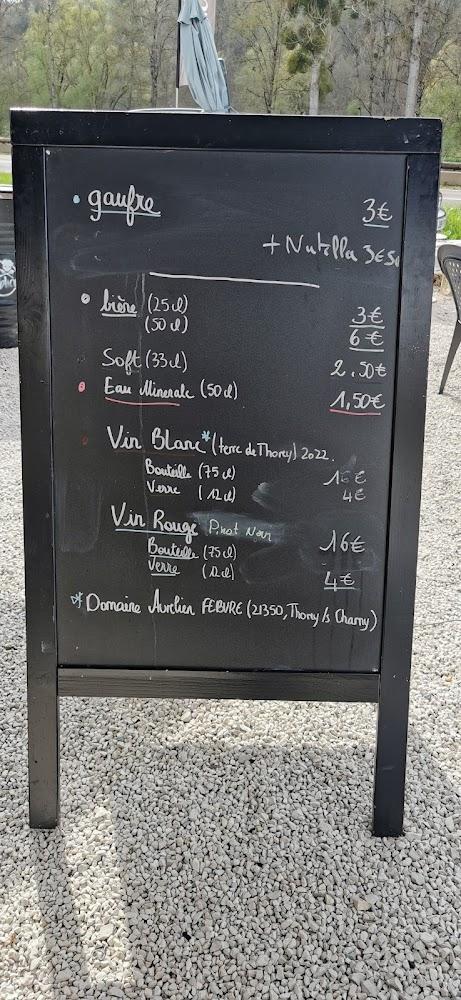 gaufre 3€
+ Nutella 3€50
bière (25 cl) 3€
(50 cl) 6€
Soft (33cl) 2,50€
Eau Minerale (50 cl) 1,50€
Vin Blanc* (terre de Thorey) 2022.
Bouteille (75 cl) 16€
Verre (12 cl) 4€
Vin Rouge Pinot Noir
Bouteille (75 cl) 16€
Verre (12 cl) 4€
* Domaine Aurélien FEBVRE (21350, Thorey /s Charny)